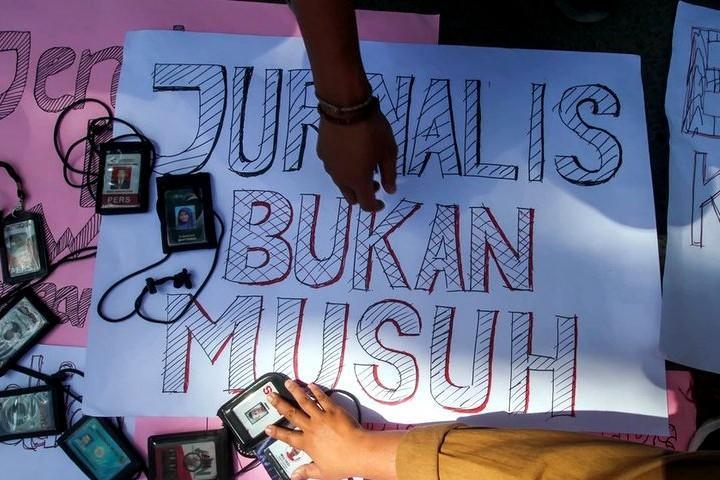 Jen
JURNALIS
BUKAN
MUSUH
PERS